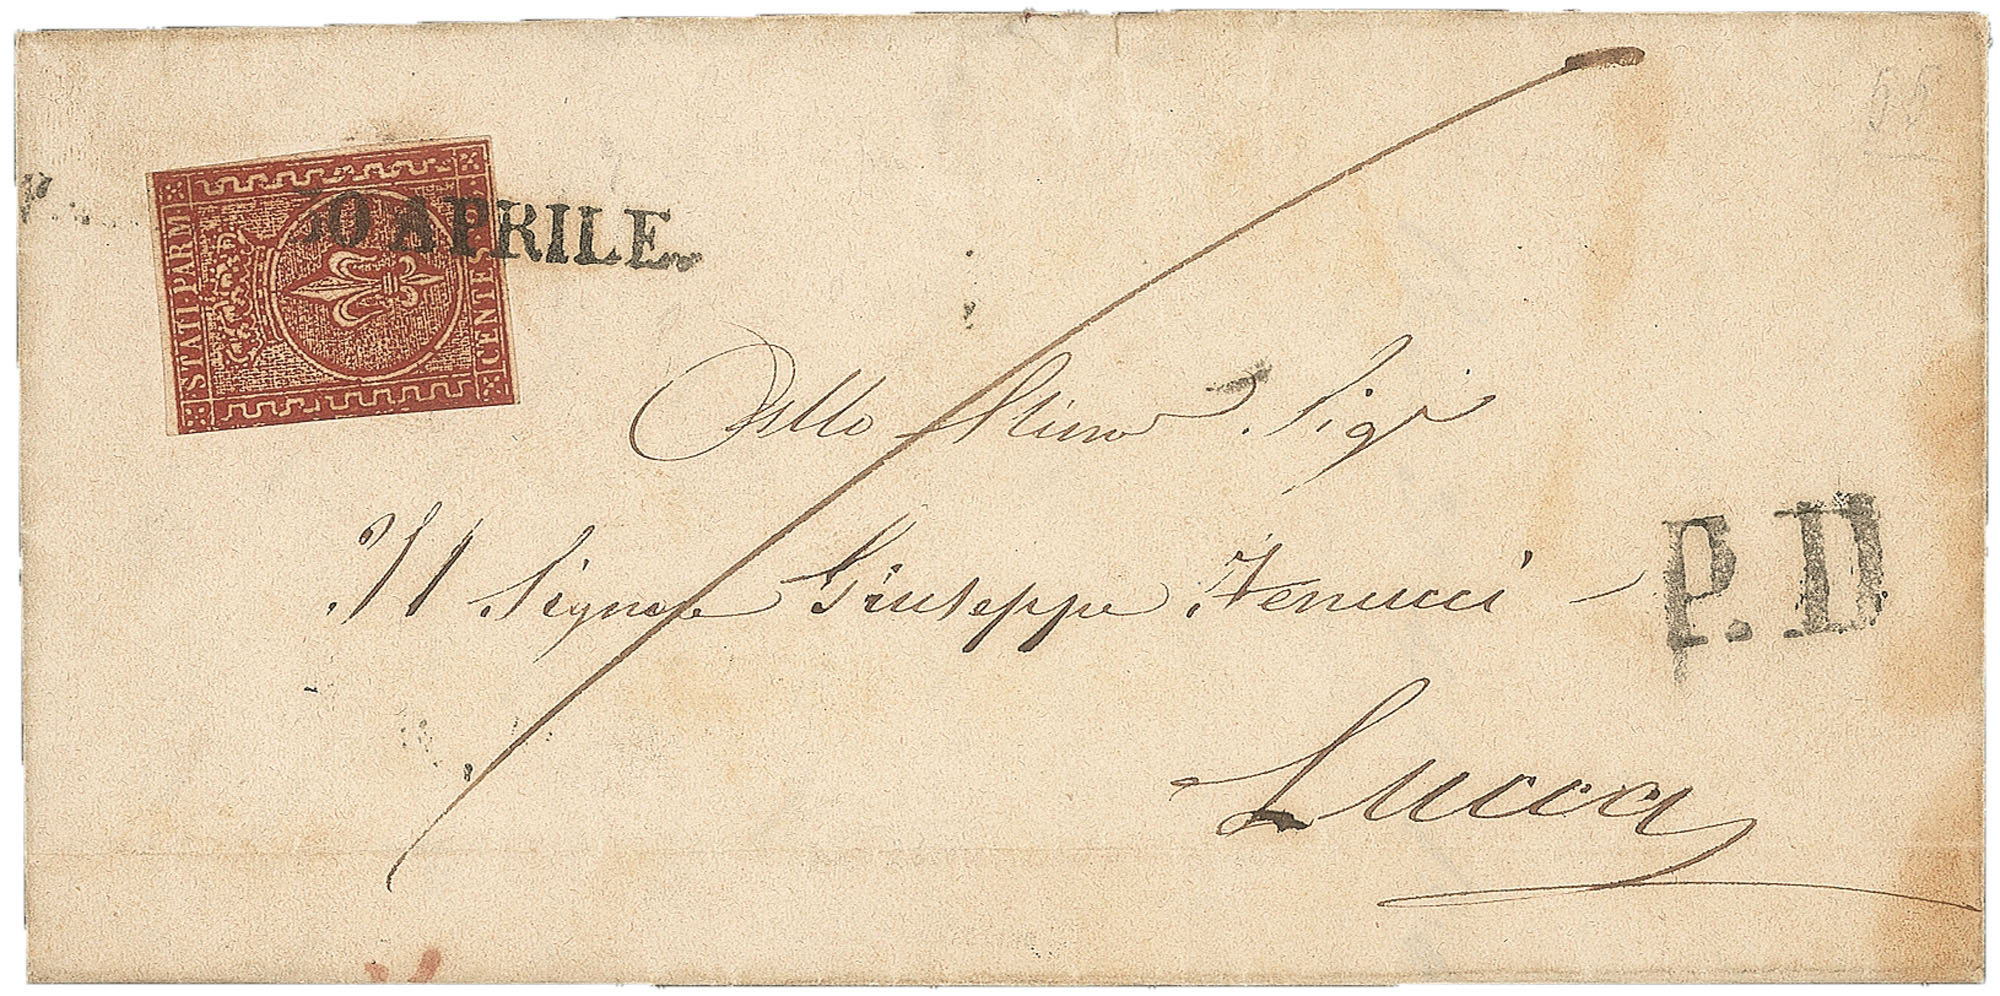 55
STATI PARM
CENTES.
30 APRILE.
P.
Allo Stimo Sigr
Il Signore Giuseppe Fenucci
P. D
Lucca